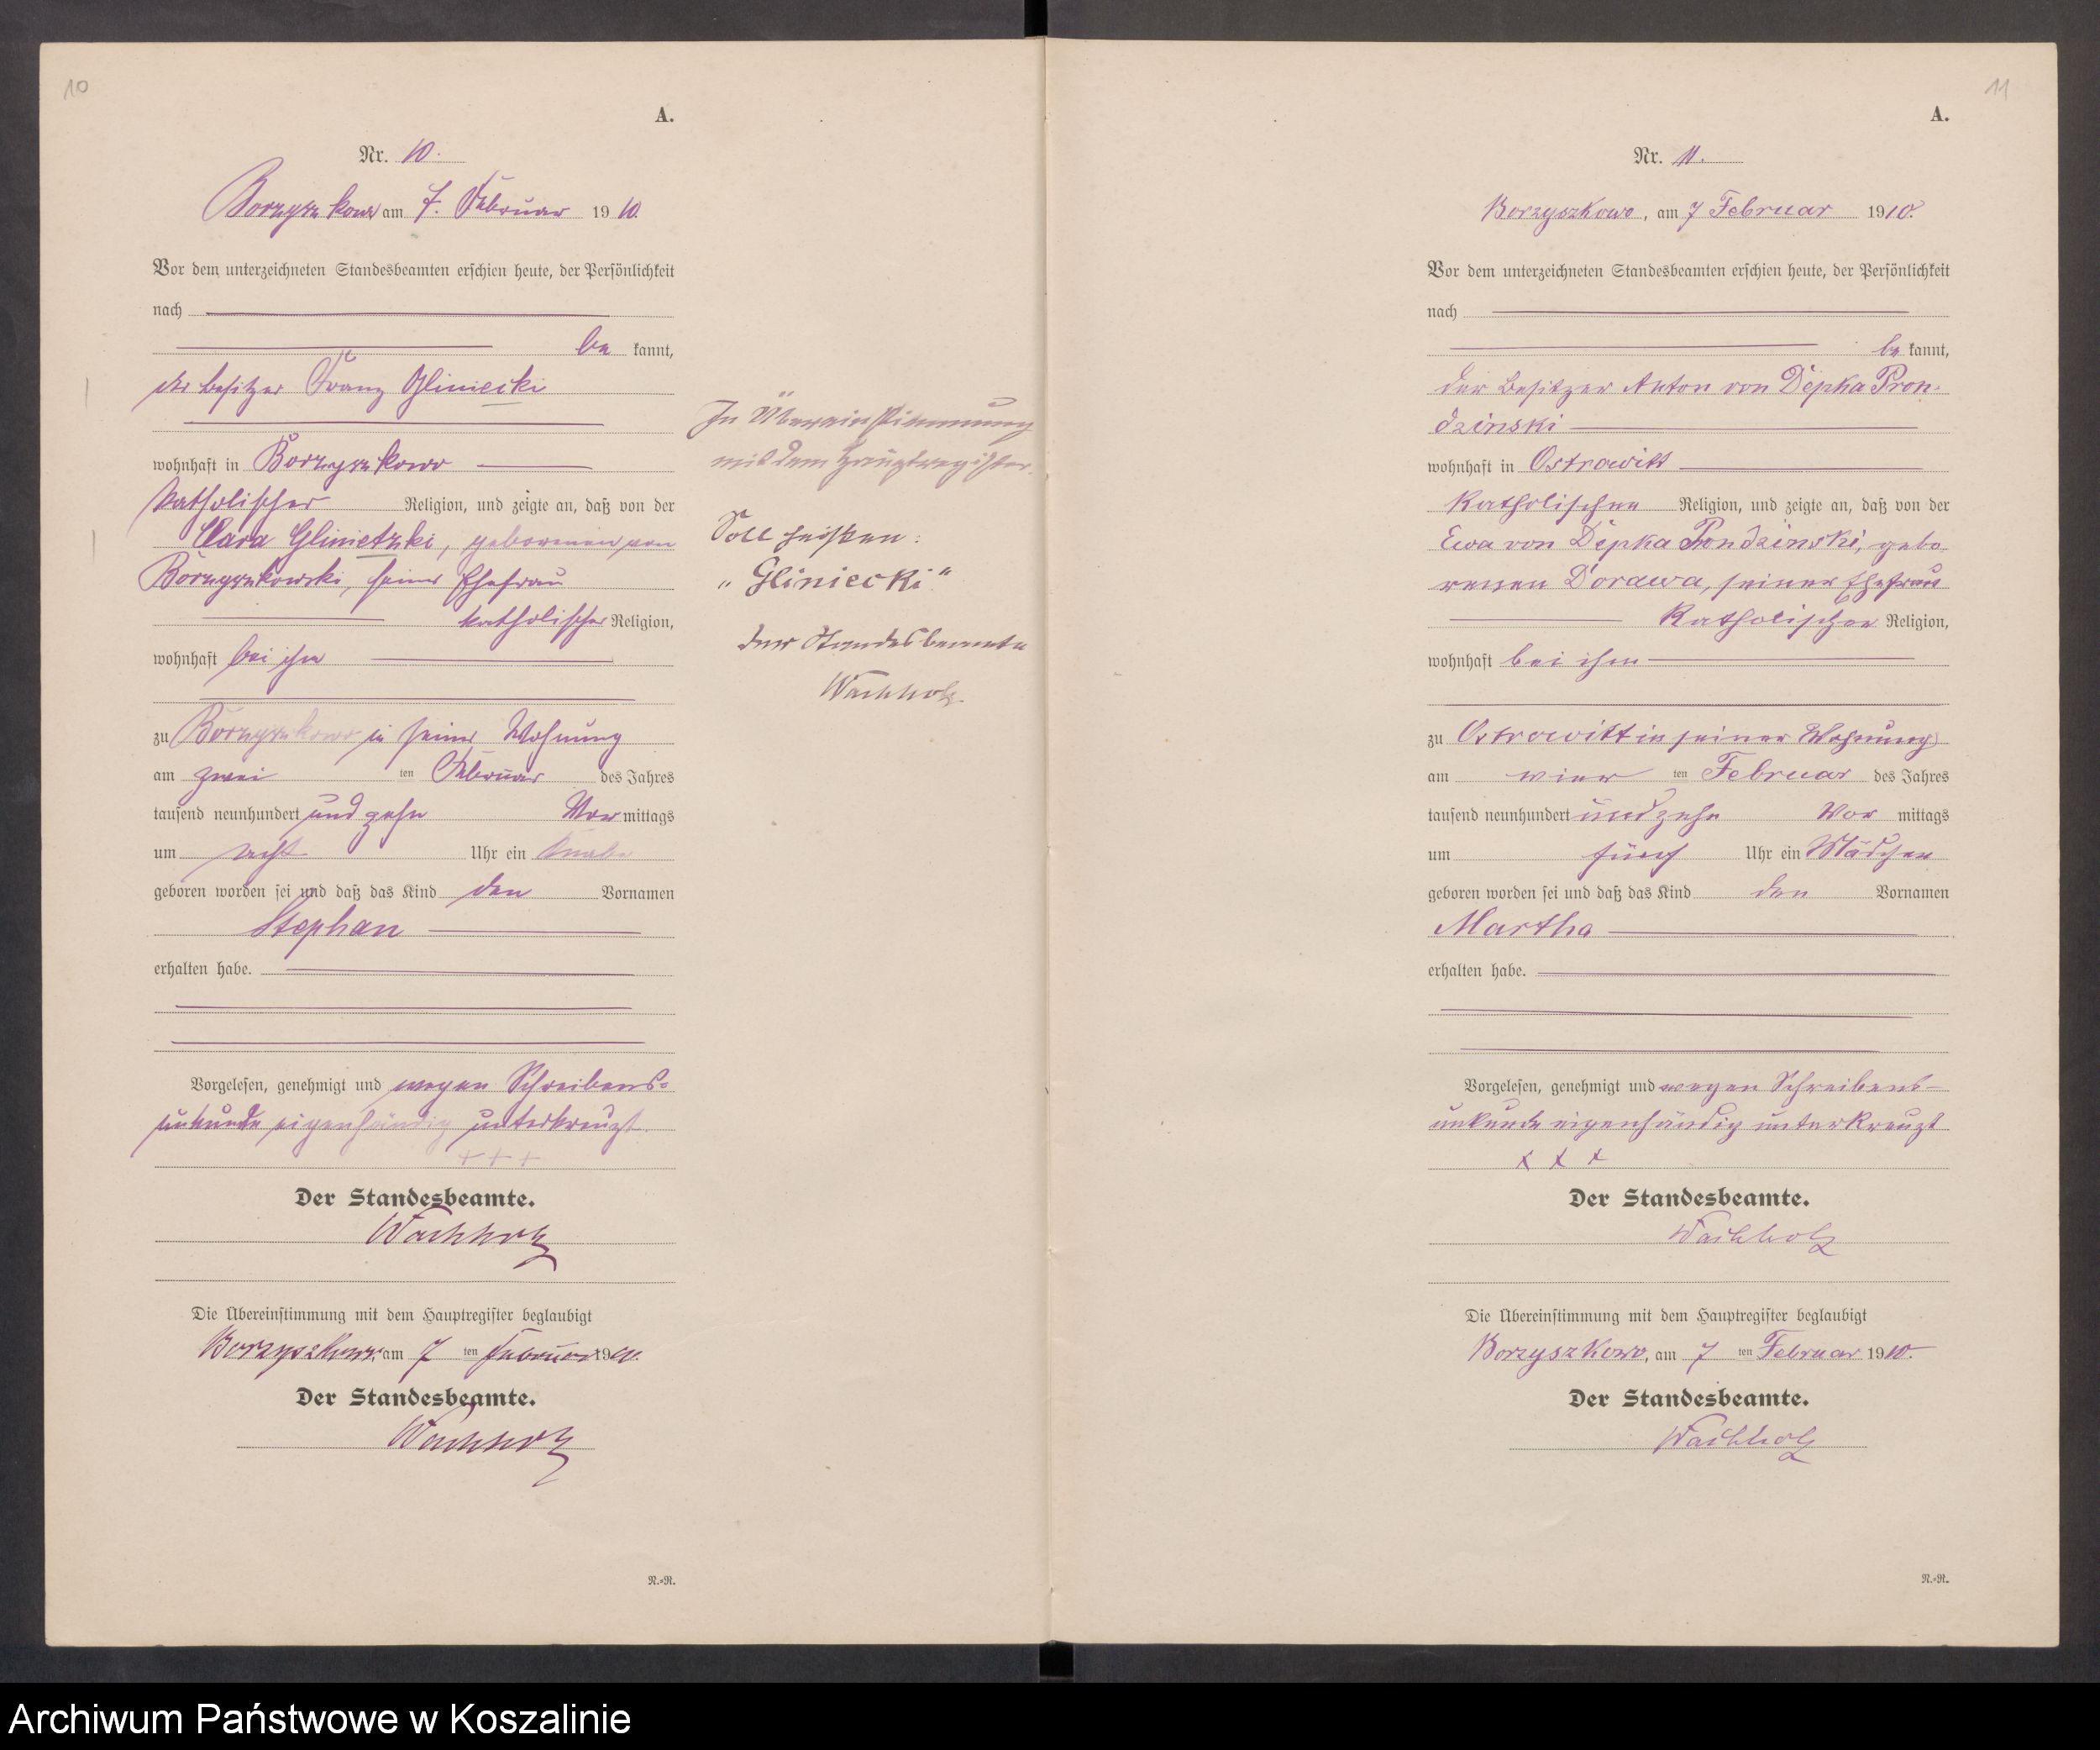 10
A.
Nr. 10.
Borzyszkowo am 7. Februar 1910.
Vor dem unterzeichneten Standesbeamten erschien heute, der Persönlichkeit
nach
be kannt,
der Besitzer Franz Gliniecki
wohnhaft in Borzyszkowo
katholischer Religion, und zeigte an, daß von der
Clara Glinietzki, geborenen von
Borzyszkowski, seiner Ehefrau
katholischer Religion,
wohnhaft bei ihm
zu Borzyszkowo in seiner Wohnung
am zwei ten Februar des Jahres
tausend neunhundert und zehn Vor mittags
um acht Uhr ein Knabe
geboren worden sei und daß das Kind den Vornamen
Stephan
erhalten habe.
Vorgelesen, genehmigt und wegen Schreibens-
unkunde eigenhändig unterkreuzt.
+++
Der Standesbeamte.
Wachholz
Die Übereinstimmung mit dem Hauptregister beglaubigt
Borzyszkowo, am 7 ten Februar 1910.
Der Standesbeamte.
Wachholz
N.-R.
In Übereinstimmung
mit dem Hauptregister.
Soll heißen:
„Gliniecki"
Der Standesbeamte
Wachholz.
11
A.
Nr. 11.
Borzyszkowo, am 7 Februar 1910.
Vor dem unterzeichneten Standesbeamten erschien heute, der Persönlichkeit
nach
be kannt,
der Besitzer Anton von Depka Pron-
dzinski
wohnhaft in Ostrowitt
katholischen Religion, und zeigte an, daß von der
Ewa von Depka Prondzinski, gebo
renen Dorawa, seiner Ehefrau
katholischer Religion,
wohnhaft bei ihm
zu Ostrowitt in seiner Wohnung
am vier ten Februar des Jahres
tausend neunhundert und zehn Vor mittags
um fünf Uhr ein Mädchen
geboren worden sei und daß das Kind den Vornamen
Martha
erhalten habe.
Vorgelesen, genehmigt und wegen Schreibens-
unkunde eigenhändig unterkreuzt
x x x
Der Standesbeamte.
Wachholz
Die Übereinstimmung mit dem Hauptregister beglaubigt
Borzyszkowo, am 7 ten Februar 1910.
Der Standesbeamte.
Wachholz
N.-R.
Archiwum Państwowe w Koszalinie